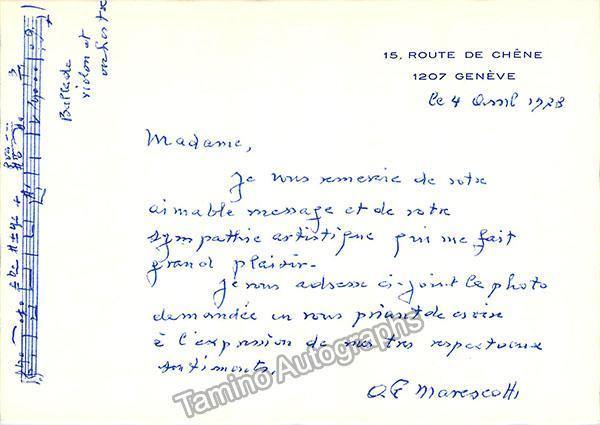 15, ROUTE DE CHÊNE
1207 GENÈVE
le 4 Avril 1978
Madame,
Je vous remercie de votre
aimable message et de votre
sympathie artistique qui me fait
grand plaisir.
Je vous adresse ci-joint la photo
demandée en vous priant de croire
à l'expression de mes très respectueux
sentiments.
A F Marescotti
Ballade
violon et
orchestre
Tamino Autographs